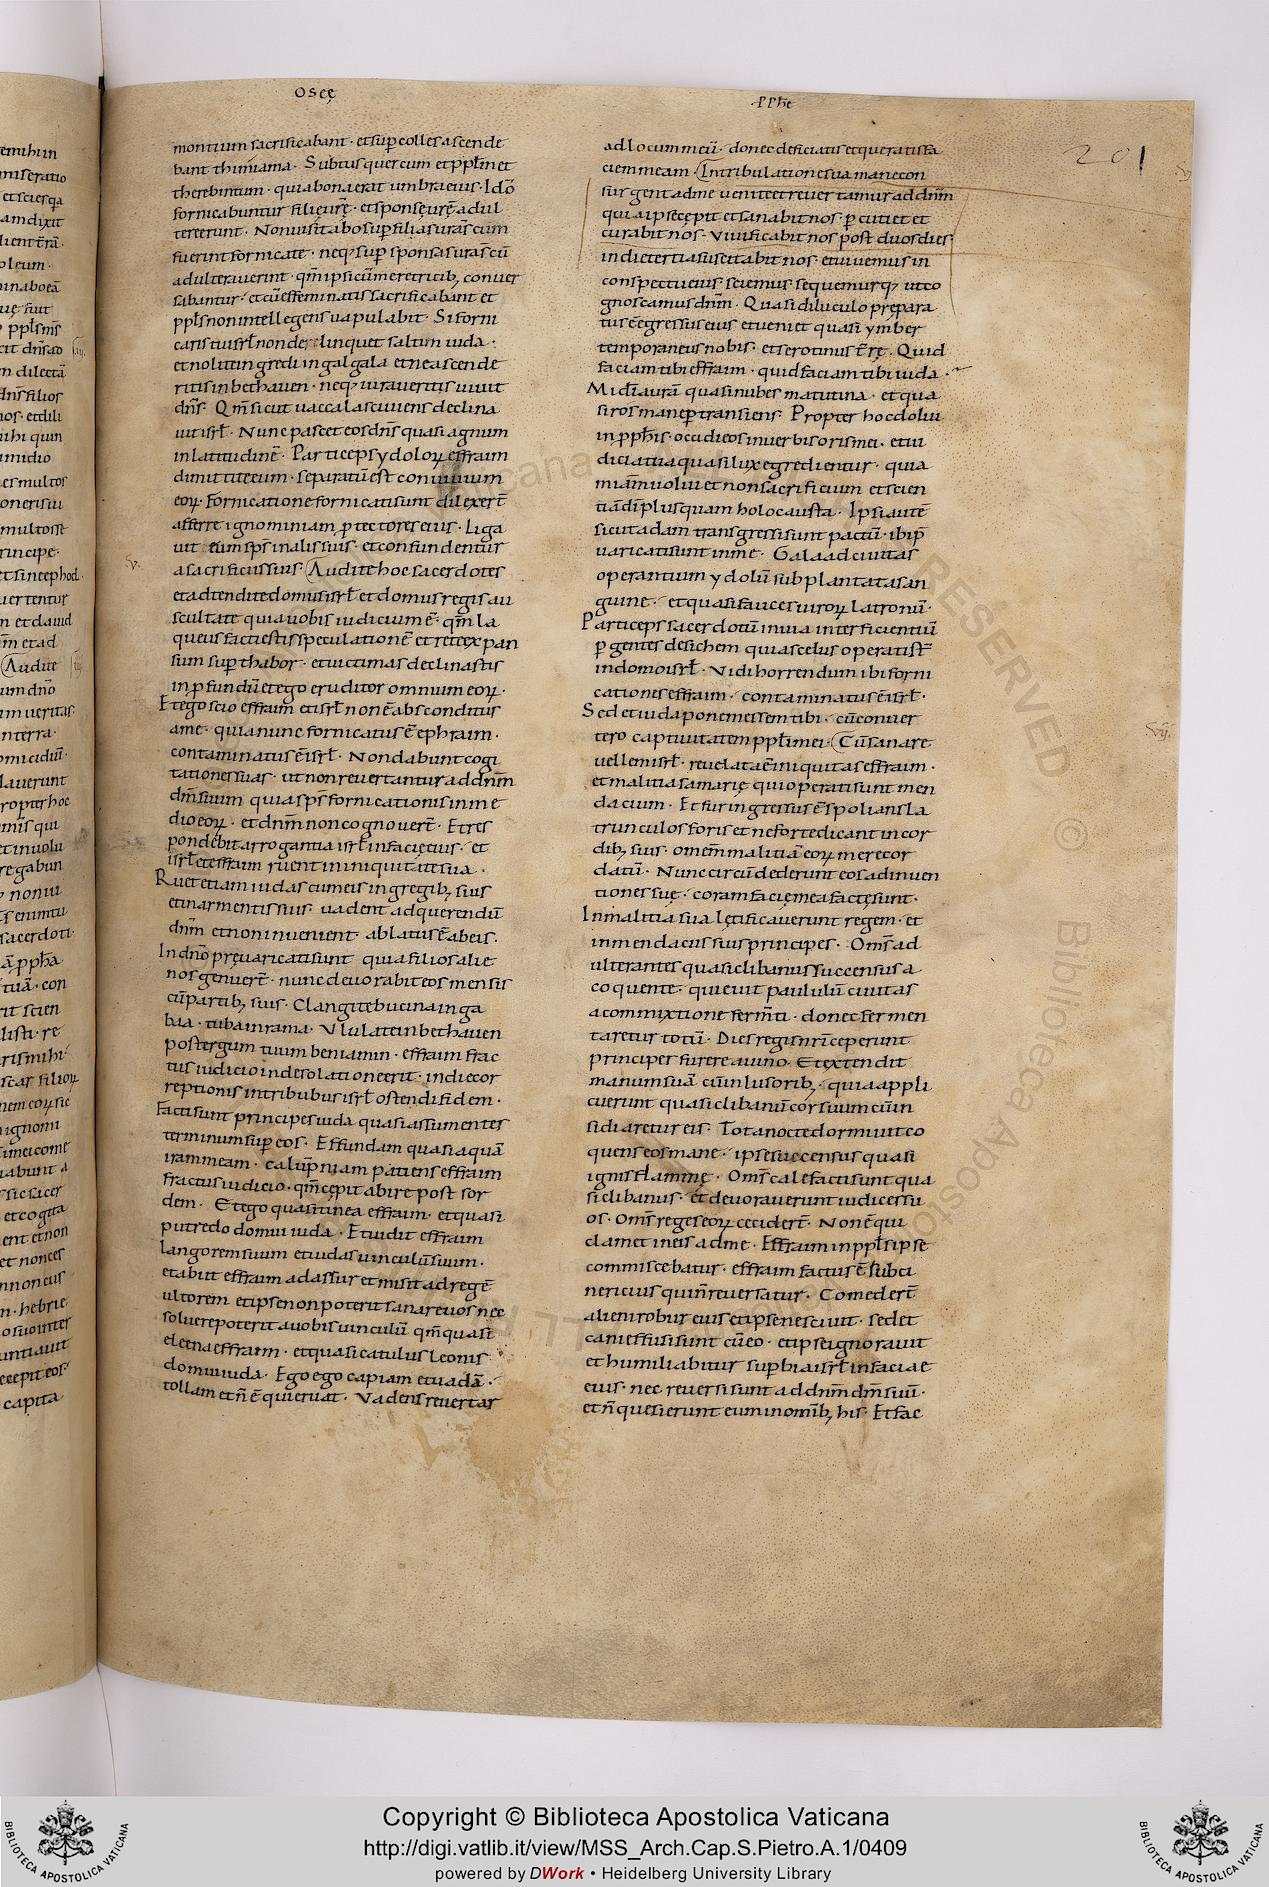 Oseę
PPhe
201
montium sacrificabant · et sup colles ascende
bant thimiama · Subtus quercum et pplm et
therebintum · quia bona erat umbra eius · Ido
fornicabuntur filię urę · et sponsę urę adul
tere erunt · Non uisitabo sup filias uras cum
fuerint fornicate · neq; sup sponsas uras cu
adulterauerint · qm ipsi cu meretricib; conuer
sabantur · et cu effeminatis sacrificabant et
ppls non intellegens uapulabit · Si forni
caris tu isrl non derelinquet saltim iuda ·
et nolite ingredi in galgala et ne ascende
ritis in bethauen · neq; iuraueritis uiuit
dns · Qm sicut uacca lasciuiens declina
uit isrl · Nunc pascet eos dns quasi agnum
in latitudine · Particeps ydoloꝝ effraim
dimittite eum · separatu est conuiuium
eoꝝ · Fornicatione fornicati sunt dilexert
afferre ignominiam ptectores eius · Liga
uit eum sps in alis suis · et confundentur
a sacrificiis suis · Audite hoc sacerdotes
et adtendite domus isrl et domus regis au
scultate quia uobis iudicium e · qm la
queus facti estis speculatione et rete expan
sum sup thabor · et uictimas declinastis
in pfundu et ego eruditor omnium eoꝝ ·
Et ego scio effraim et isrl non e absconditus
a me · quia nunc fornicatus e ephraim ·
contaminatus e isrl · Non dabunt cogi
tationes suas · ut non reuertantur ad dnm
dm suum quia sps fornicationis in me
dio eoꝝ · et dnm non cognouert · Et res
pondebit arrogantia isrl in facię eius · et
isrl et effraim ruent in iniquitate sua ·
Ruet etiam iudas cum eis in gregib; suis
et in armentis suis uadent ad querendu
dnm et non inuenient ablatus e ab eis ·
In dno pręuaricati sunt quia filios alie
nos genuert · nunc deuorabit eos mensis
cu partib; suis · Clangite bucina in ga
baa · tuba in rama · Ululate in bethauen
post ergum tuum beniamin · effraim frac
tus iudicio in desolatione erit · in die cor
reptionis in tribubus isrl ostendi fidem ·
Facti sunt principes iuda quasi assumentes
terminum sup eos · Effundam quasi aqua
iram meam · calupniam patiens effraim
fractus iudicio · qm cępit abire post sor
dem · Et ego quasi tinea effraim · et quasi
putredo domui iuda · Et uidit effraim
langorem suum et iudas uinculu suum ·
et abiit effraim ad assur et misit ad rege
ultorem et ipse non poterit sanare uos nec
soluere poterit a uobis uinculu qm quasi
eleena effraim · et quasi catulus leonis
domui iuda · Ego ego capiam et uada ·
tollam et n e qui eruat · Vadens reuertar
ad locum meu · donec deficiatis et queratis fa
ciem meam · In tribulatione sua mane con
surgent ad me uenite et reuertamur ad dnm
quia ip se cępit et sanabit nos · pcutiet et
curabit nos · Viuificabit nos post duos dies
in die tertia suscitabit nos · et uiuemus in
conspectu eius sciemus sequemurq; ut co
gnoscamus dnm · Quasi diluculo prępara
tus e egressus eius et ueniet quasi ymber
temporaneus nobis · et serotinus trę · Quid
faciam tibi effraim · quid faciam tibi iuda ·
Midia ura quasi nubes matutina · et qua
si ros mane ptransiens · Propter hoc dolui
in pphis · occidi eos in uerbis oris mei · et iu
dicia tua quasi lux egredientur · quia
miam uolui et non sacrificium et scien
tia di plus quam holocausta · Ipsi aute
sicut adam transgressi sunt pactu · ibi p
uaricati sunt in me · Galaad ciuitas
operantium ydolu subplantata san
guine · et quasi fauces uiroꝝ latronu ·
Particeps sacerdotu in uia interficientiu
pgentes de sichem quia scelus operati st
in domo isrl · Vidi horrendum ibi forni
cationes effraim · contaminatus e isrl ·
Sed et iuda pone messem tibi · cu conuer
tero captiuitatem ppli mei · Cu sanare
uellem isrl · reuelata e iniquitas effraim ·
et malitia samarię quia operati sunt men
dacium · Et fur ingressus e spolians la
trunculos foris et ne forte dicant in cor
dib; suis · omem malitia eoꝝ me recor
datu · Nunc circudederunt eos adinuen
tiones suę · coram facię mea factę sunt ·
In malitia sua lętificauerunt regem · et
in mendaciis suis principes · Oms ad
ulterantes quasi clibanus succensus a
coquente · quieuit paululu ciuitas
a commixtione fermti · donec fermen
taretur totu · Dies regis nri ceperunt
principes furere a uino · Et extendit
manum sua cu inlusorib; · quia appli
cuerunt quasi clibanu cor suum cu in
sidiaretur eis · Tota nocte dormiuit co
quens eos mane · ipse succensus quasi
ignis flammę · Oms calefacti sunt qua
si clibanus · et deuorauerunt iudices su
os · Oms reges eoꝝ cecidert · Non e qui
clamet in eis ad me · Effraim in pplis ipse
commiscebatur · effraim factus e subci
nericius qui n reuersatur · Comedert
alieni robur eius et ipse nesciuit · sed et
cani effusi sunt cu eo · et ipse ignorauit
et humiliabitur supbia isrl in facia e
eius · nec reuersi sunt ad dnm dm suu ·
et n quesierunt eum in omib; his · Et fac
Copyright © Biblioteca Apostolica Vaticana
http://digi.vatlib.it/view/MSS_Arch.Cap.S.Pietro.A.1/0409
powered by DWork • Heidelberg University Library
BIBLIOTECA APOSTOLICA VATICANA
BIBLIOTECA APOSTOLICA VATICANA